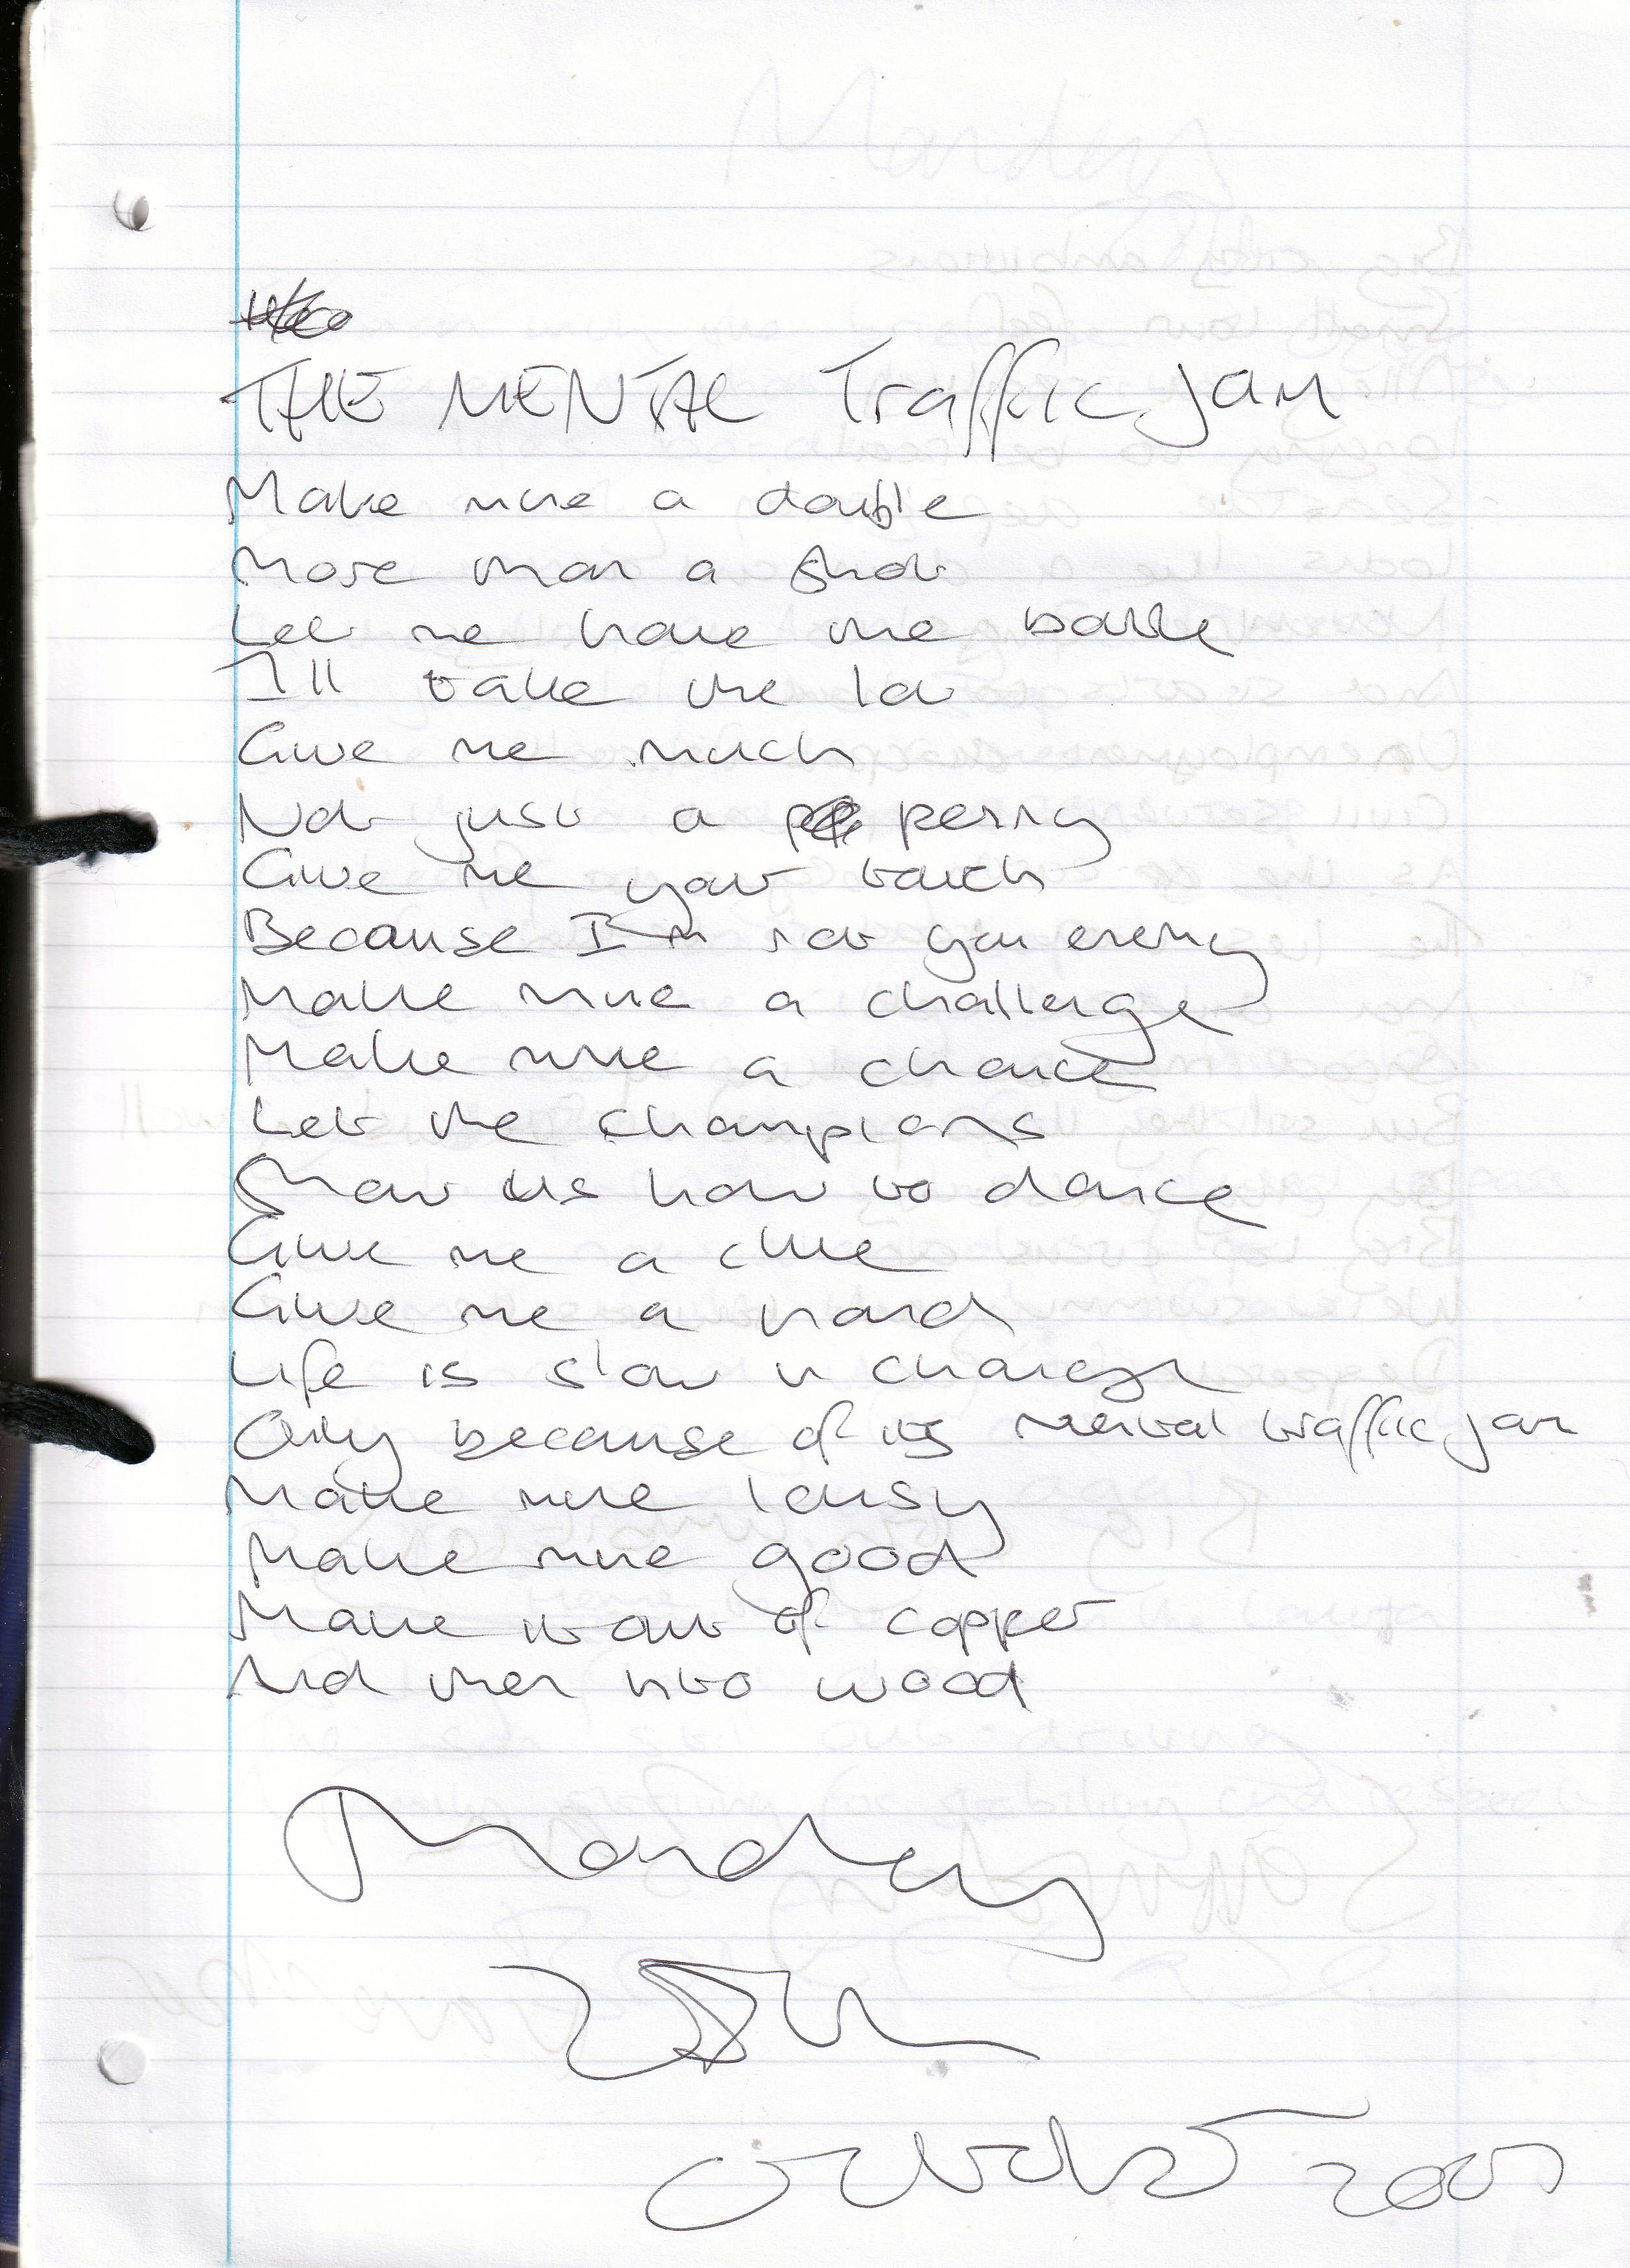 THE MENTAL Traffic Jam
Make mine a double
More than a shot
Let me have the bottle
I'll take the lot
Give me much
Not just a penny
Give me your touch
Because I'm not you enemy
Make mine a challenge
Make mine a chance
Let the champions
Show us how to dance
Give me a clue
Give me a hand
Life is slow in change
Only because of its mental traffic jam
Make mine lousy
Make mine good
Make it out of copper
And then into wood
Monday
October 2005